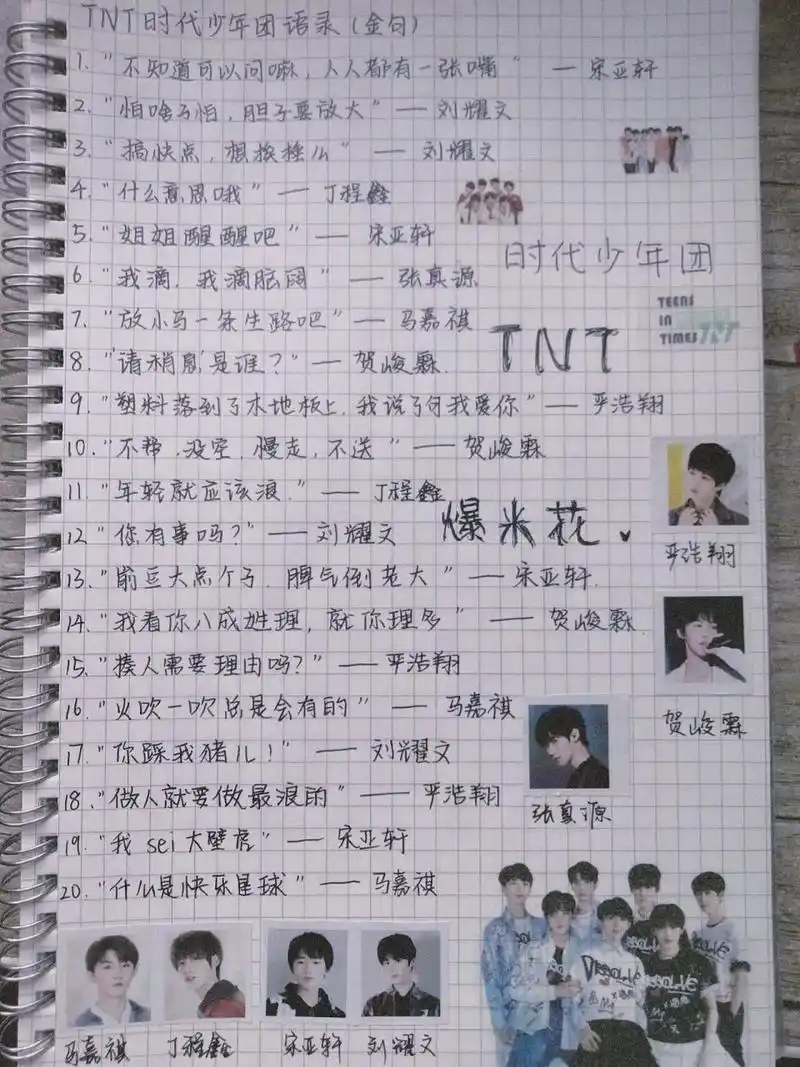 TNT时代少年团语录(金句)
1. "不知道可以问嘛,人人都有一张嘴" — 宋亚轩
2. "怕啥子怕,胆子要放大" — 刘耀文
3. "搞快点,想挨捶么" — 刘耀文
4. "什么意思哦" — 丁程鑫
5. "姐姐醒醒吧" — 宋亚轩
6. "我滴,我滴脑阔" — 张真源
时代少年团
7. "放小马一条生路吧" — 马嘉祺
TEENS
IN
TIMES TNT
TNT
8. "'请稍息'是谁?" — 贺峻霖
9. "塑料落到了木地板上,我说了句我爱你" — 严浩翔
10. "不帮,没空,慢走,不送" — 贺峻霖
11. "年轻就应该浪." — 丁程鑫
12 "你有事吗?" — 刘耀文
爆米花
严浩翔
13. "前豆大点个子,脾气倒老大" — 宋亚轩.
14. "我看你八成姓理,就你理多" — 贺峻霖
15. "揍人需要理由吗?" — 严浩翔
16. "火吹一吹总是会有的" — 马嘉祺
贺峻霖
17. "你踩我猪儿!" — 刘耀文
18. "做人就要做最浪的" — 严浩翔
张真源
19. "我 sei 大壁虎" — 宋亚轩
20. "什么是快乐星球" — 马嘉祺
DISSOLVE
DISSOLVE
马嘉祺 丁程鑫 宋亚轩 刘耀文